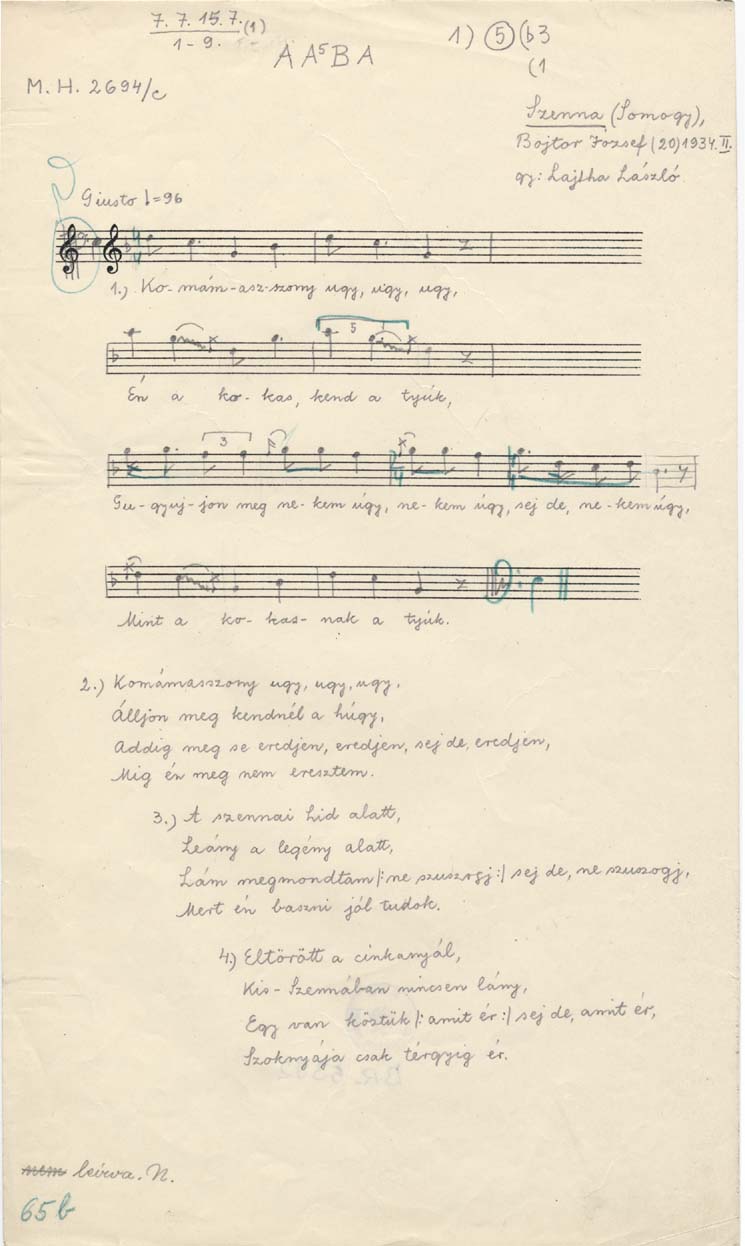 7. 7. 15. 7. (1)
1-9.
A A5 B A
1) 5 (b3
(1
M. H. 2694/c
Szenna (Somogy),
Bojtor József (20) 1934. II.
gy: Lajtha László
Giusto ♩=96
1.) Ko-mám-asz-szony ugy, úgy, ugy,
5
Én a ko-kas, kend a tyúk,
3
Gu-gyuj-jon meg ne-kem úgy, ne-kem úgy, sej de, ne-kem úgy,
Mint a ko-kas-nak a tyúk.
2.) Komámasszony ugy, ugy, ugy,
Álljon meg kendnél a húgy,
Addig meg se eredjen, eredjen, sej de, eredjen,
Mig én meg nem eresztem.
3.) A szennai hid alatt,
Leány a legény alatt,
Lám megmondtam |: ne szuszogj :| sej de, ne szuszogj,
Mert én baszni jól tudok.
4.) Eltörött a cinkanyál,
Kis-Szennában nincsen lány,
Egy van köztük |: amit ér :| sej de, amit ér,
Szoknyája csak térgyig ér.
nem leírva. N.
65b